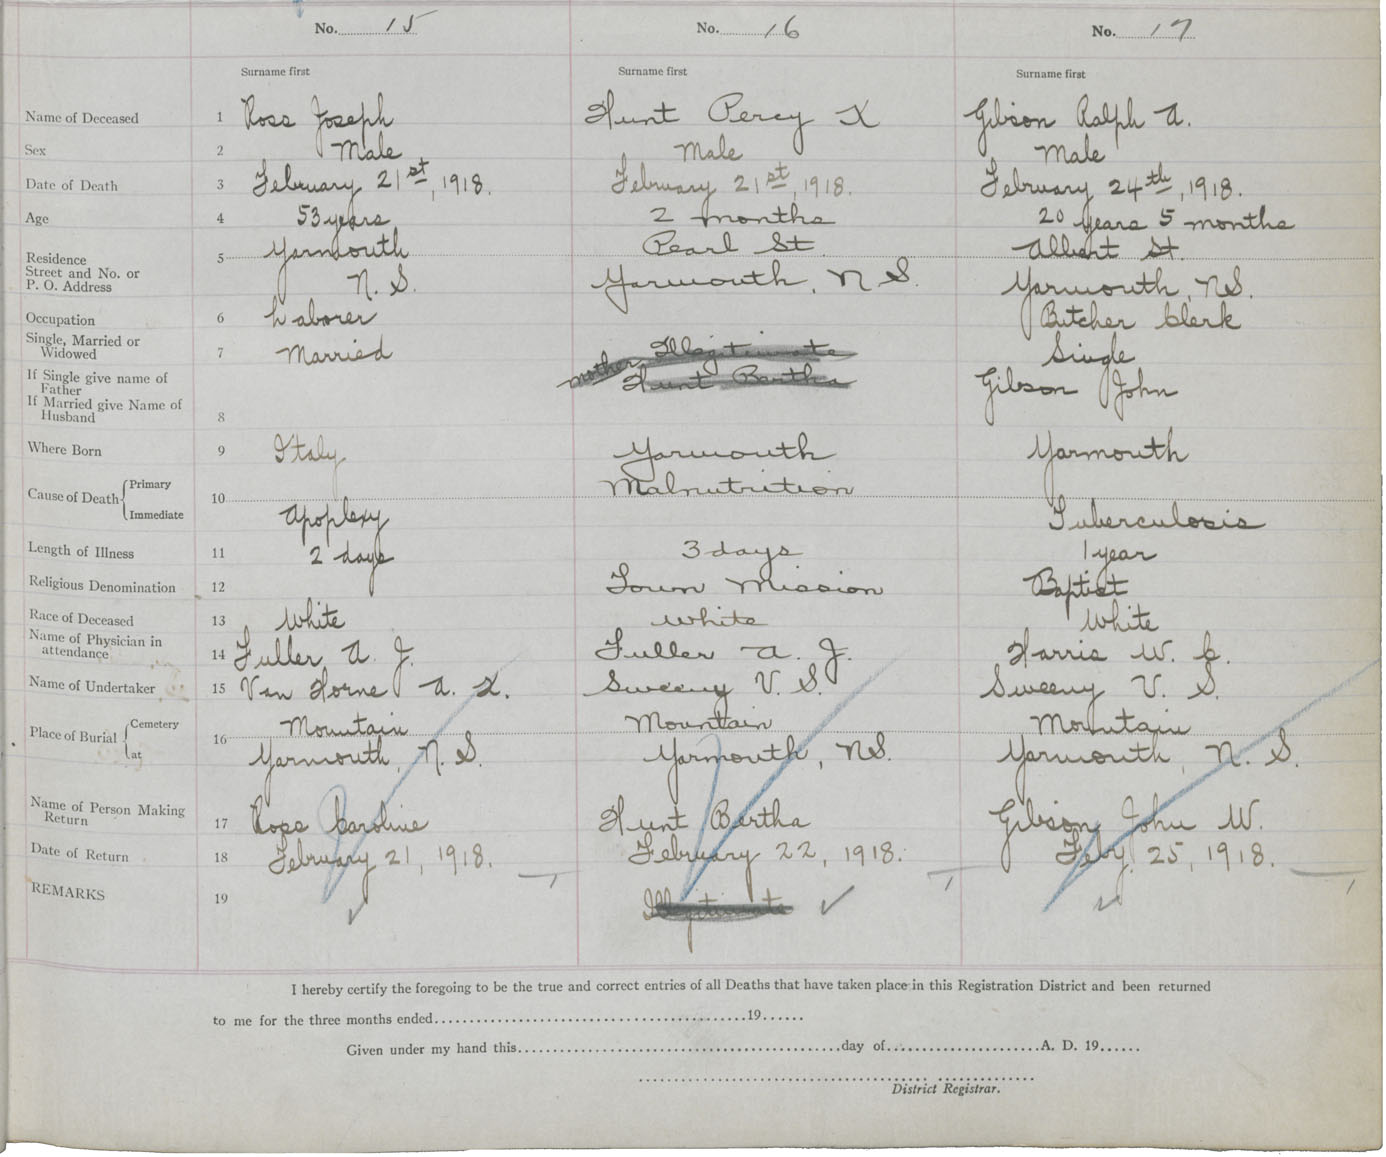 No. 15 No. 16 No. 17
Surname first Surname first Surname first
Name of Deceased 1 Ross Joseph Hunt Percy X Gibson Ralph A.
Sex 2 Male Male Male
Date of Death 3 February 21st, 1918. February 21st, 1918. February 24th, 1918.
Age 4 53 years 2 months 20 years 5 months
Residence
Street and No. or
P. O. Address
5 Yarmouth Pearl St. Albert St.
N. S. Yarmouth, N S. Yarmouth, NS.
Occupation 6 Laborer Butcher Clerk
Single, Married or
Widowed
7 Married Illegitimate Single
If Single give name of
Father
mother Hunt Bertha Gibson John
If Married give Name of
Husband
8
Where Born 9 Italy Yarmouth Yarmouth
Cause of Death Primary 10 Malnutrition
Immediate Apoplexy Tuberculosis
Length of Illness 11 2 days 3 days 1 year
Religious Denomination 12 Town Mission Baptist
Race of Deceased 13 White White White
Name of Physician in
attendance
14 Fuller A. J. Fuller A. J. Harris W. C.
Name of Undertaker 15 Van Horne A. K. Sweeny V. S. Sweeny V. S.
Place of Burial Cemetery 16 Mountain Mountain Mountain
at Yarmouth, N. S. Yarmouth, NS. Yarmouth, N. S.
Name of Person Making
Return
17 Ross Caroline Hunt Bertha Gibson John W.
Date of Return 18 February 21, 1918. February 22, 1918. Feby. 25, 1918.
REMARKS 19 Illegitimate
I hereby certify the foregoing to be the true and correct entries of all Deaths that have taken place in this Registration District and been returned
to me for the three months ended..........19......
Given under my hand this..........day of..........A. D. 19......
District Registrar.